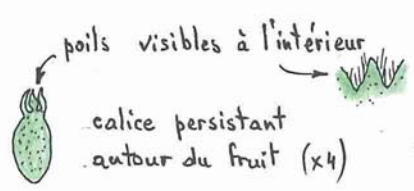 poils visibles à l'intérieur
calice persistant
autour du fruit (x4)